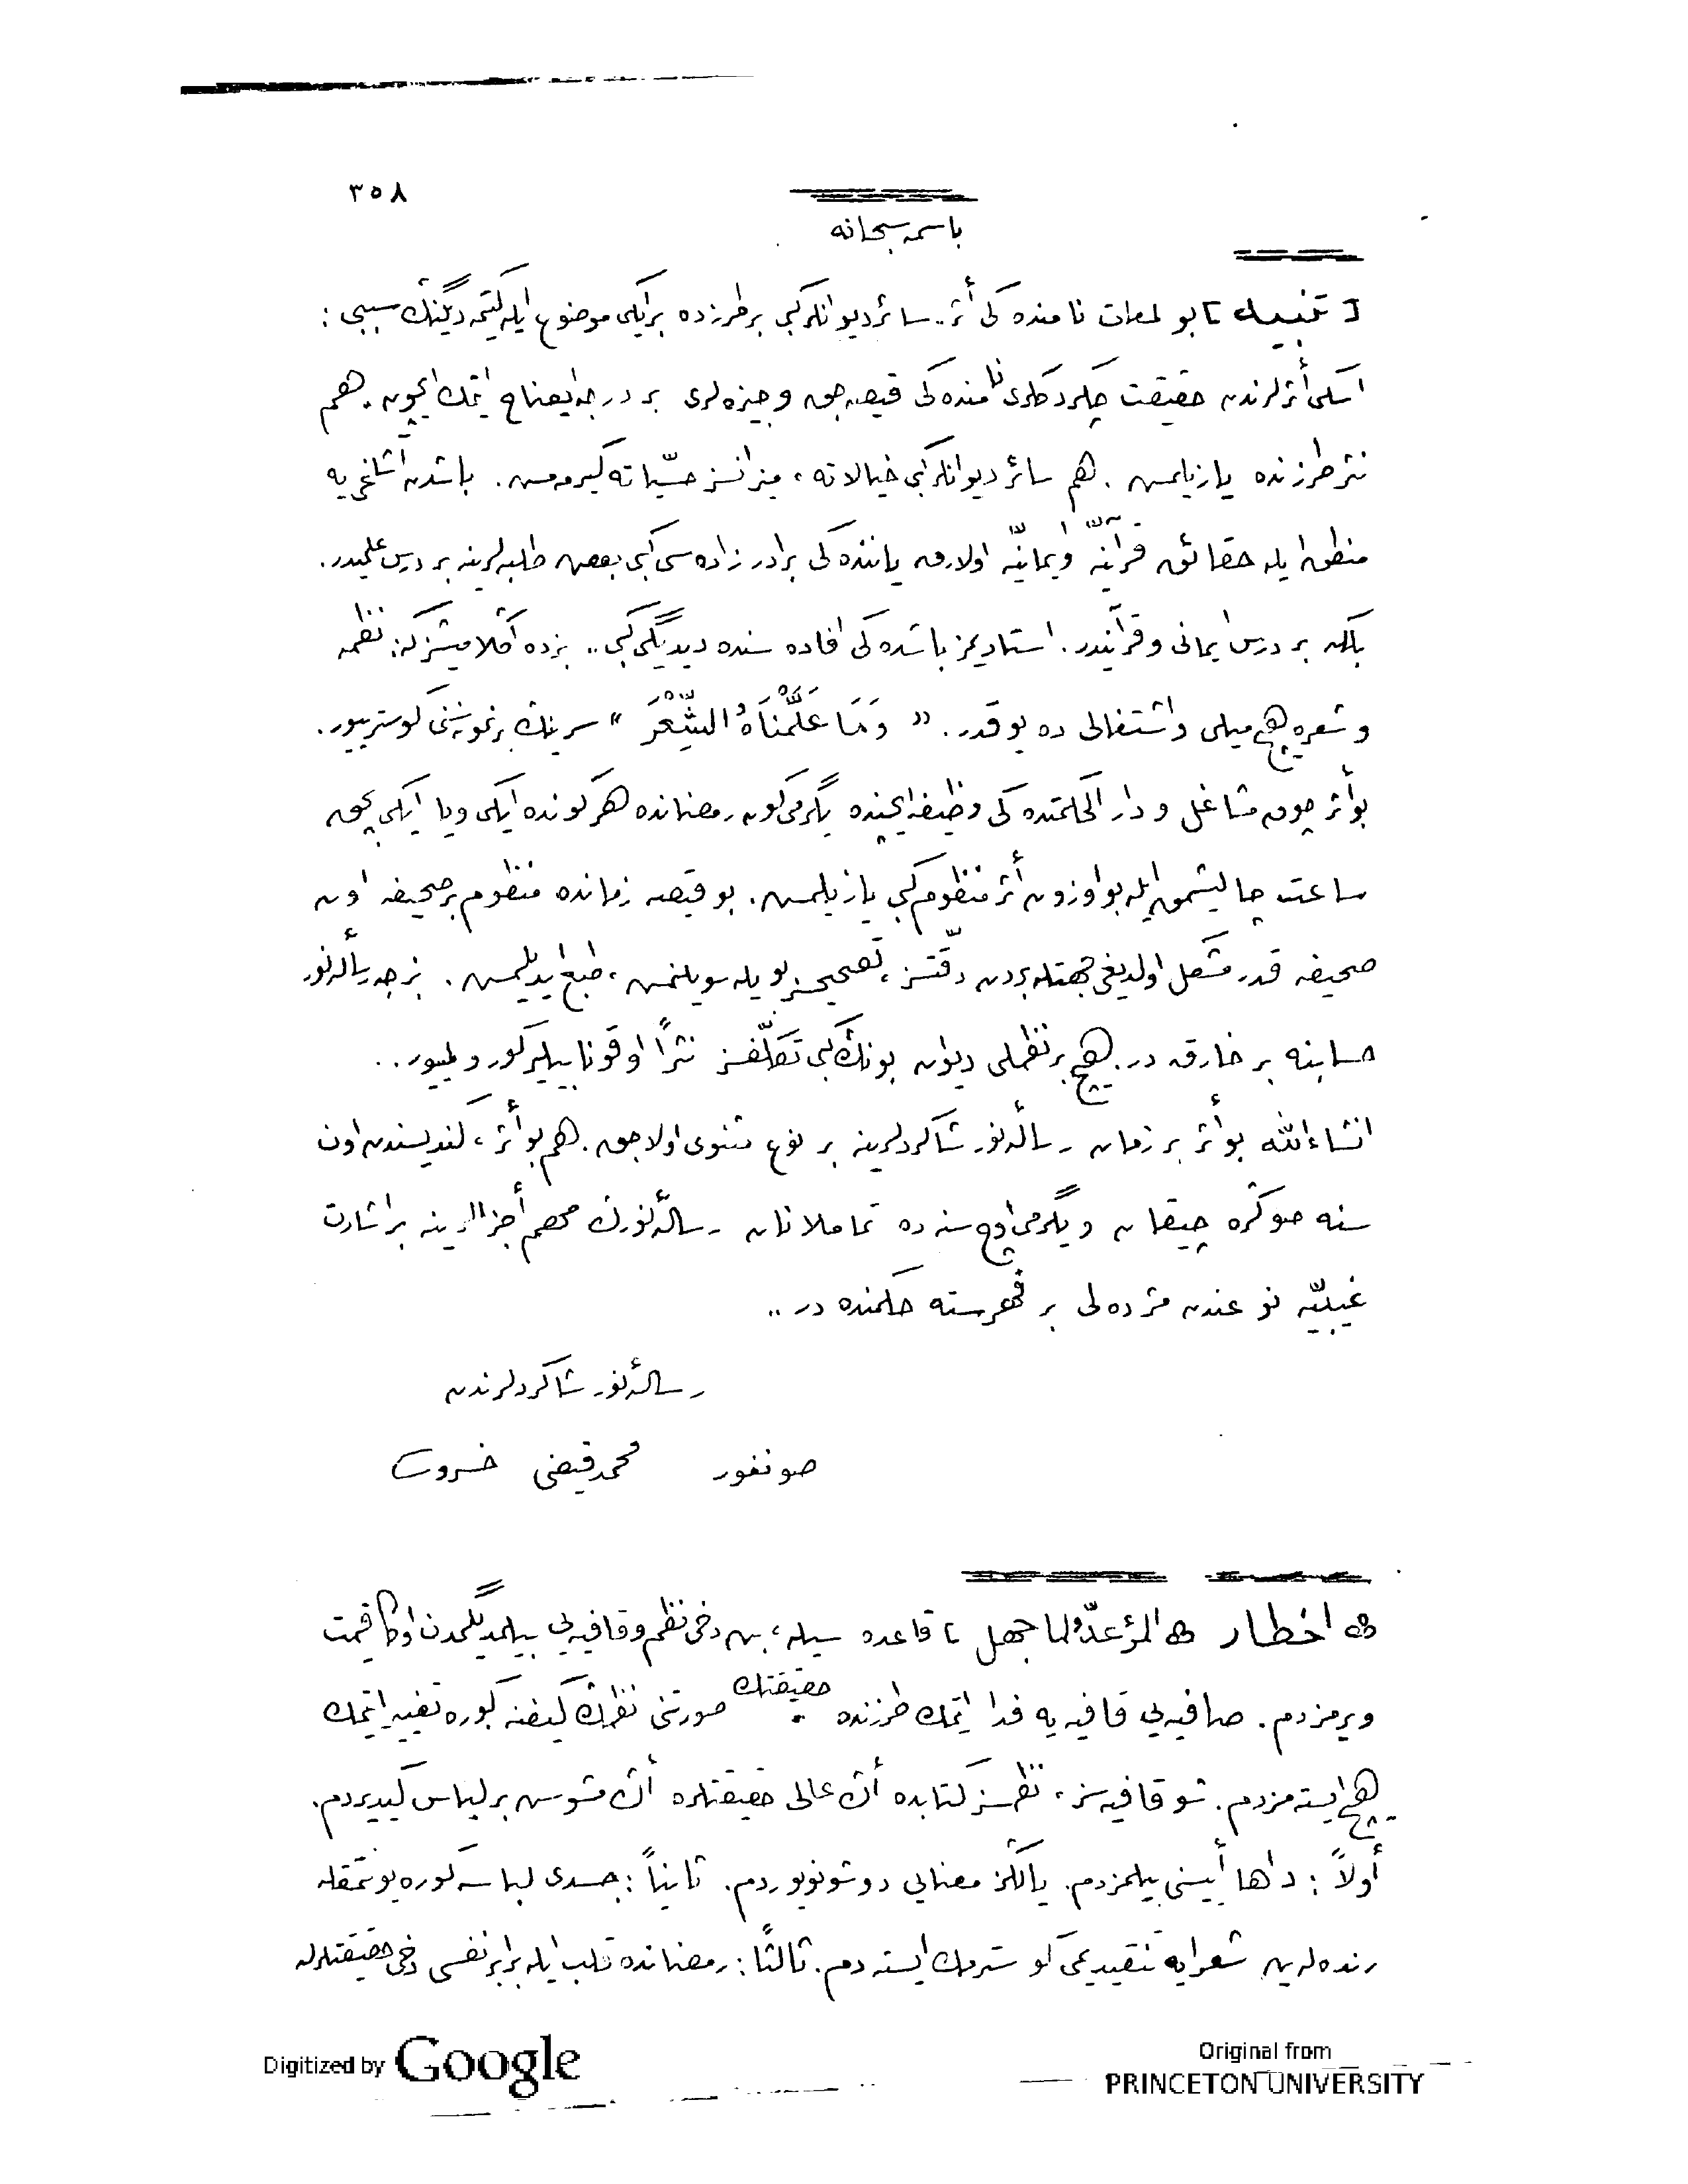 ٣٥٨
باسمه سبحانه
[ تنبيه ] بو لمعات نامنده كى أثر.. سائر ديوانلر كبى بر طرزده بر ايكى موضوع ايله كيتمه ديگينڭ سببى :
اسكى أثرلرندن حقيقت چكردكلرى نامنده كى قيصه جق وجيزه لرى بر درجه ايضاح ايتمك ايچون. هم
نثر طرزنده يازيلمش . هم سائر ديوانلر كبى خيالاته ، ميزانسز حسّياته كيرمه مش . باشدن اشاغى يه
منطق ايله حقائق قرآنيّه وايمانيّه اولارق ياننده كى برادر زاده سى كبى بعض طلبه لرينه بر درس علميدر .
بلكه بر درس ايمانى وقرآنيدر . استاديمز باشده كى افاده سنده ديديگى كبى .. بزده آڭلامیشز كه : نظمه
و شعره هيچ ميلى واشتغالى ده يوقدر . « وَمَا عَلَّمْنَاهُ الشِّعْرَ » سرينڭ بر نمونه سنى كوستريیور .
بو أثر چوق مشاغل و دار الحكمتده كى وظيفه ايچنده يگرمى كون رمضانده هر كونده ايكى ويا ايكى بچق
ساعت چاليشمق ايله بو اوزون أثر منظوم كبى يازيلمش . بو قيصه زمانده منظوم بر صحيفه اون
صحيفه قدر مشكل اولديغى جهتله بردن دقّتسز ، تصحيحسز بويله سويلنمش ، طبع ايديلمش . بزجه رسالۀ نور
حسابنه بر خارقه در . هيچ بر نظملى ديوان بونڭ كبى تكلّفسز نثراً اوقونابيلير كورولمیور ..
انشاءالله بو أثر بر زمان رسالۀ نور شاكردلرينه بر نوع مثنوى اولاجق . هم بو أثر ، كنديسندن اون
سنه صوڭره چيقان و يگرمى اوچ سنه ده تماملانان رسالۀ نورڭ مهم أجزالرينه بر اشارت
غيبيّه نوعندن مژده لى بر فهرسته حكمنده در ..
رسالۀ نور شاكردلرندن
صونغور محمد فيضى خسرو
اخطار المرؤ عدوٌّ لما جهل ] قاعده سيله ، بن دخى نظم وقافيه يى بيلمديگمدن اوڭا قيمت
ويرمزدم . صافيه يى قافيه يه فدا ايتمك طرزنده حقيقتڭ صورتنى نظمڭ كيفنه كوره تغيير ايتمك
هيچ ايسته مزدم . شو قافيه سز ، نظمسز كتابده أڭ عالى حقيقتلره أڭ مشوش بر لباس كيديردم .
أولاً : داها أييسنى بيلمزدم . يالڭز معنايى دوشونويوردم . ثانياً : جسدى لباسه كوره يونتمقله
رنده له ين شعرايه تنقيديمى كوسترمك ايسته دم . ثالثاً : رمضانده قلب ايله برابر نفسى دخى حقيقتلرله
Digitized by Google
Original from
PRINCETON UNIVERSITY